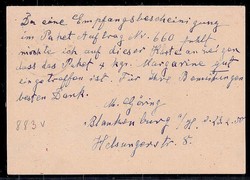 Da eine Empfangsbescheinigung
im Paket Auftrag Nr. 660 fehlt
möchte ich auf dieser Karte anzeigen
dass das Paket 4 kgr. Margarine gut
eingetroffen ist. Für Ihre Bemühungen
besten Dank.
M. Göring
Blankenburg a/H.
Helsungerstr. 5.